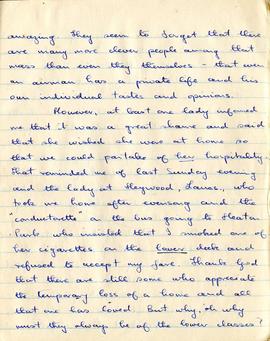 amazing. They seem to forget that there
are many more clever people among that
mass than ever they themselves – that even
an airman has a private life and his
own individual tastes and opinions.
However, at least one lady informed
me that it was a great shame and said
that she wished she were at home so
that we could partake of her hospitality.
That reminded me of last Sunday evening
and the lady at Heywood, Lancs., who
took me home after evensong and the
"conductorette" on the bus going to Heaton
Park who insisted that I smoked one of
her cigarettes on the lower deck and
refused to accept my fare. Thank God
that there are still some who appreciate
the temporary loss of a home and all
that one has loved. But why, oh why
must they always be of the lower classes?